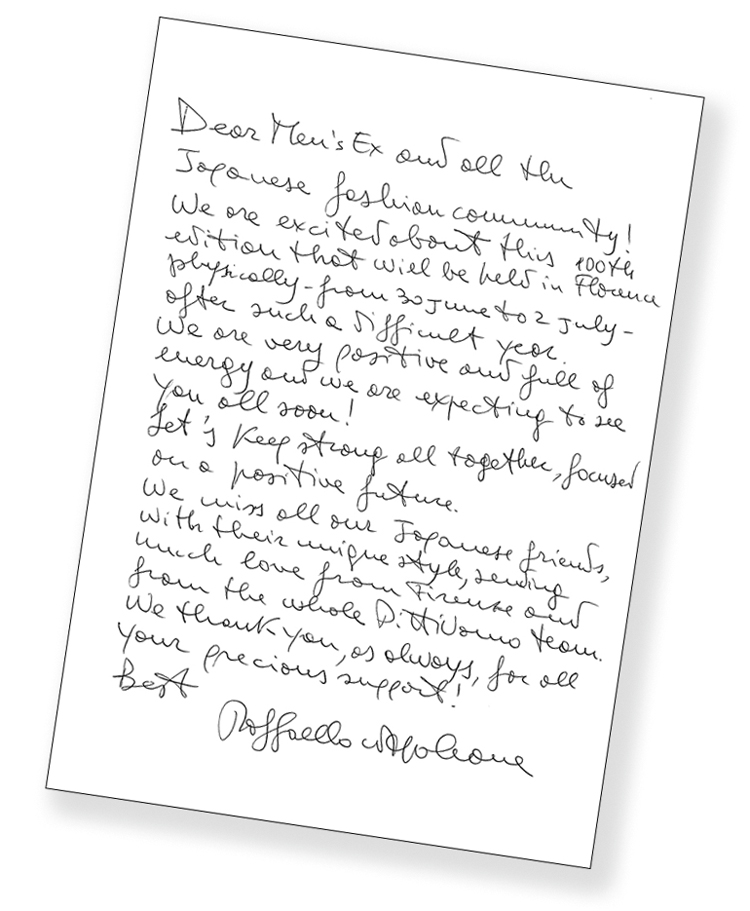 Dear Men's Ex and all the
Japanese fashion community!
We are excited about this 100th
edition that will be held in Florence
physically - from 30 June to 2 July -
after such a difficult year.
We are very positive and full of
energy and we are expecting to see
you all soon!
Let's keep strong all together, focused
on a positive future.
We miss all our Japanese friends,
with their unique style, sending
much love from Firenze and
from the whole PittiUomo team.
We thank you, as always, for all
your precious support!
Best
Raffaello Napoleone